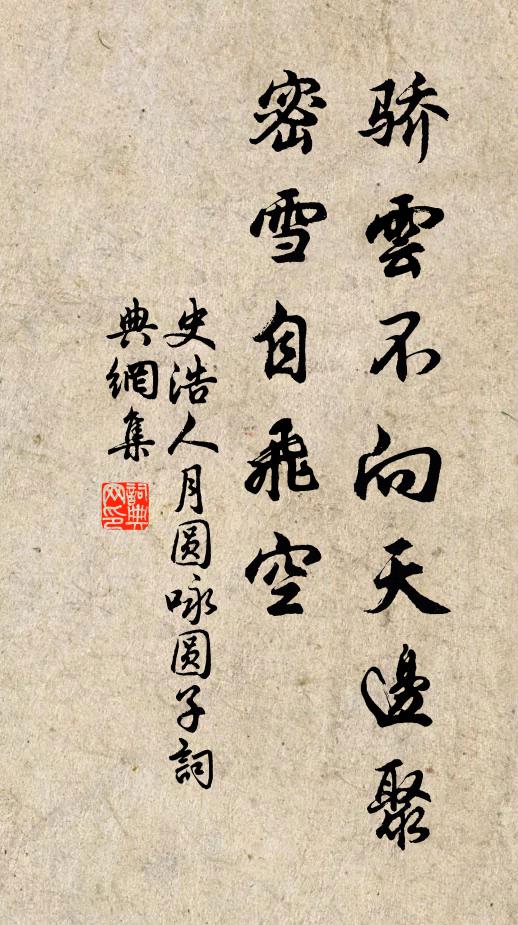 骄雲不向天邊聚
密雪自飛空
史浩人月圆咏圆子詞
典網集
詞典
网印